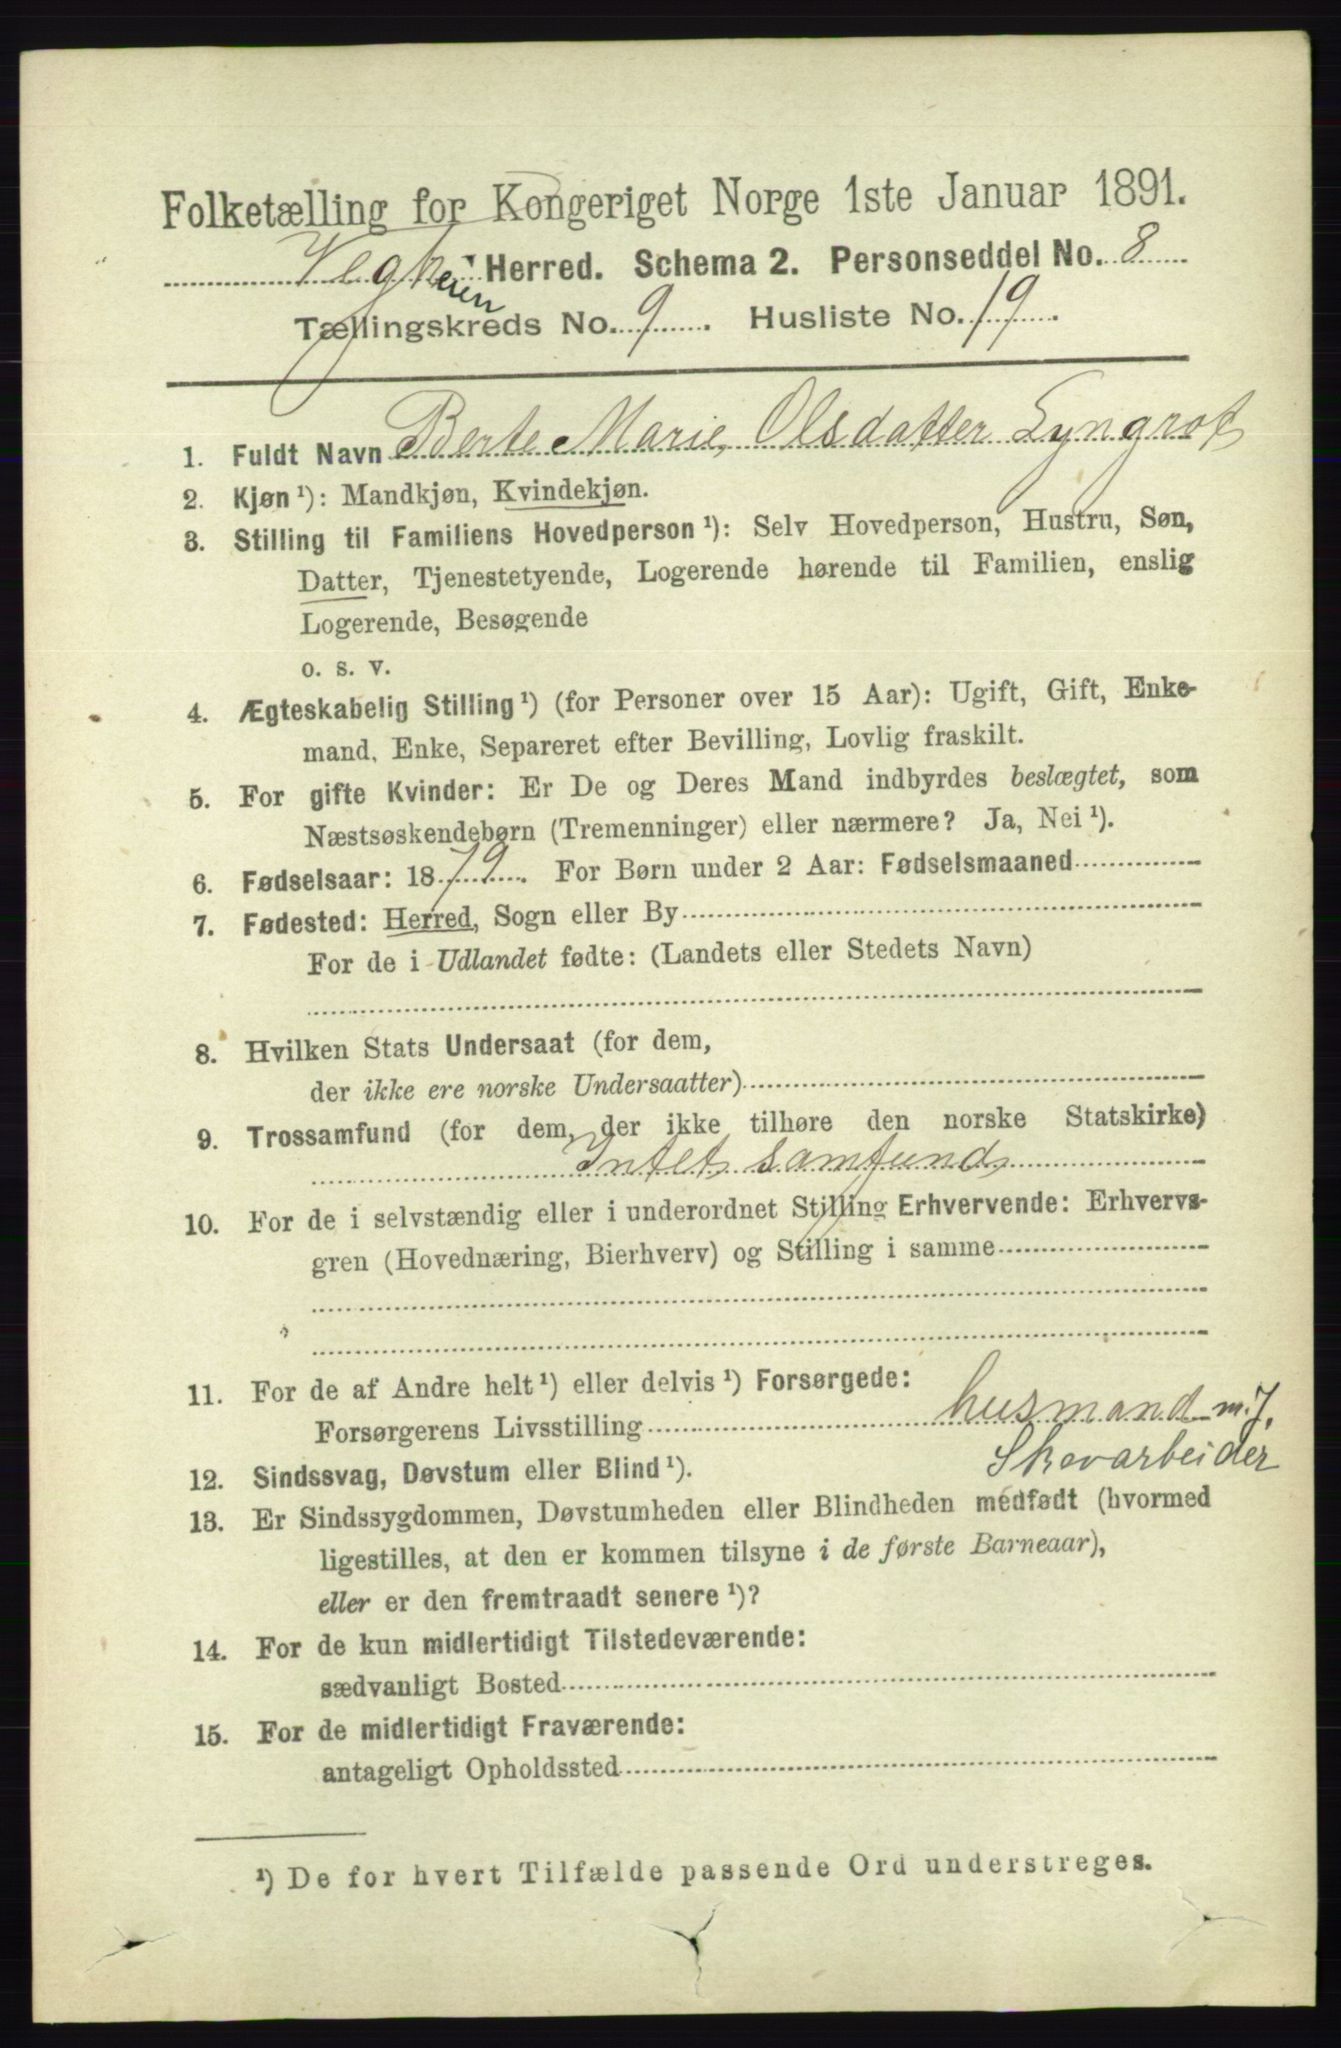 Folketælling for Kongeriget Norge 1ste Januar 1891.
Vegheien Herred. Schema 2. Personseddel No. 8
Tællingskreds No. 9. Husliste No. 19.
1. Fuldt Navn Berte Marie Olsdatter Lyngrot
2. Kjøn ¹): Mandkjøn, Kvindekjøn.
3. Stilling til Familiens Hovedperson ¹): Selv Hovedperson, Hustru, Søn,
Datter, Tjenestetyende, Logerende hørende til Familien, enslig
Logerende, Besøgende
o. s. v.
4. Ægteskabelig Stilling ¹) (for Personer over 15 Aar): Ugift, Gift, Enke-
mand, Enke, Separeret efter Bevilling, Lovlig fraskilt.
5. For gifte Kvinder: Er De og Deres Mand indbyrdes beslægtet, som
Næstsøskendebørn (Tremenninger) eller nærmere? Ja, Nei ¹).
6. Fødselsaar: 1879. For Børn under 2 Aar: Fødselsmaaned
7. Fødested: Herred, Sogn eller By
For de i Udlandet fødte: (Landets eller Stedets Navn)
8. Hvilken Stats Undersaat (for dem,
der ikke ere norske Undersaatter)
9. Trossamfund (for dem, der ikke tilhøre den norske Statskirke)
Intet samfund
10. For de i selvstændig eller i underordnet Stilling Erhvervende: Erhvervs-
gren (Hovednæring, Bierhverv) og Stilling i samme
11. For de af Andre helt ¹) eller delvis ¹) Forsørgede:
Forsørgerens Livsstilling husmand m. J.
Skovarbeider
12. Sindssvag, Døvstum eller Blind ¹).
13. Er Sindssygdommen, Døvstumheden eller Blindheden medfødt (hvormed
ligestilles, at den er kommen tilsyne i de første Barneaar),
eller er den fremtraadt senere ¹)?
14. For de kun midlertidigt Tilstedeværende:
sædvanligt Bosted
15. For de midlertidigt Fraværende:
antageligt Opholdssted
¹) De for hvert Tilfælde passende Ord understreges.